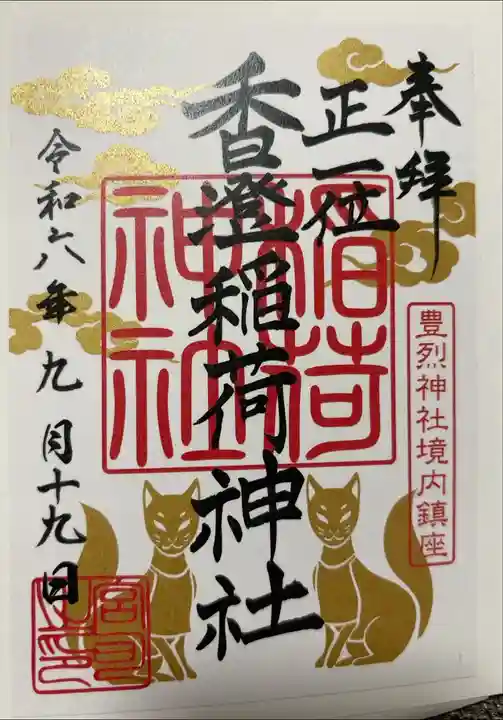 奉拝
正一位
香澄稲荷神社
令和六年九月十九日
豊烈神社境内鎮座
稲荷神社